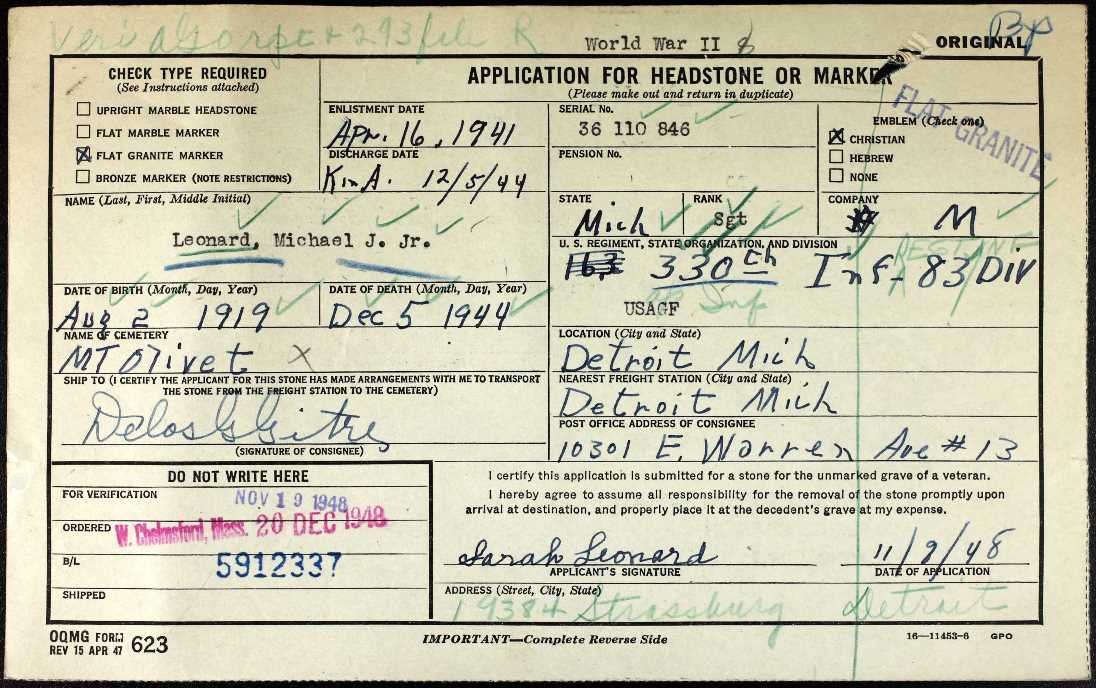 Veri
293 file R
World War II
ORIGINAL
CHECK TYPE REQUIRED
(See Instructions attached)
UPRIGHT MARBLE HEADSTONE
FLAT MARBLE MARKER
FLAT GRANITE MARKER
BRONZE MARKER (NOTE RESTRICTIONS)
APPLICATION FOR HEADSTONE OR MARKER
(Please make out and return in duplicate)
ENLISTMENT DATE
Apr. 16, 1941
DISCHARGE DATE
K in A. 12/5/44
SERIAL No.
36 110 846
PENSION No.
EMBLEM (Check one)
CHRISTIAN
HEBREW
NONE
FLAT GRANITE
NAME (Last, First, Middle Initial)
Leonard, Michael J. Jr.
STATE
Mich
RANK
Sgt
COMPANY
M
U. S. REGIMENT, STATE ORGANIZATION, AND DIVISION
163 330th Inf- 83 Div
USAGF
Inf
DATE OF BIRTH (Month, Day, Year)
Aug 2 1919
DATE OF DEATH (Month, Day, Year)
Dec 5 1944
NAME OF CEMETERY
MT Olivet X
LOCATION (City and State)
Detroit Mich
SHIP TO (I CERTIFY THE APPLICANT FOR THIS STONE HAS MADE ARRANGEMENTS WITH ME TO TRANSPORT
THE STONE FROM THE FREIGHT STATION TO THE CEMETERY)
Delos G Gitre
(SIGNATURE OF CONSIGNEE)
NEAREST FREIGHT STATION (City and State)
Detroit Mich
POST OFFICE ADDRESS OF CONSIGNEE
10301 E. Warren Ave # 13
DO NOT WRITE HERE
FOR VERIFICATION
NOV 19 1948
ORDERED
W. Chelmsford, Mass. 20 DEC 1948
B/L
5912337
SHIPPED
I certify this application is submitted for a stone for the unmarked grave of a veteran.
I hereby agree to assume all responsibility for the removal of the stone promptly upon
arrival at destination, and properly place it at the decedent's grave at my expense.
Sarah Leonard
APPLICANT'S SIGNATURE
11/9/48
DATE OF APPLICATION
ADDRESS (Street, City, State)
19384 Strassburg Detroit
OQMG FORM
REV 15 APR 47 623
IMPORTANT—Complete Reverse Side
16—11453-6 GPO